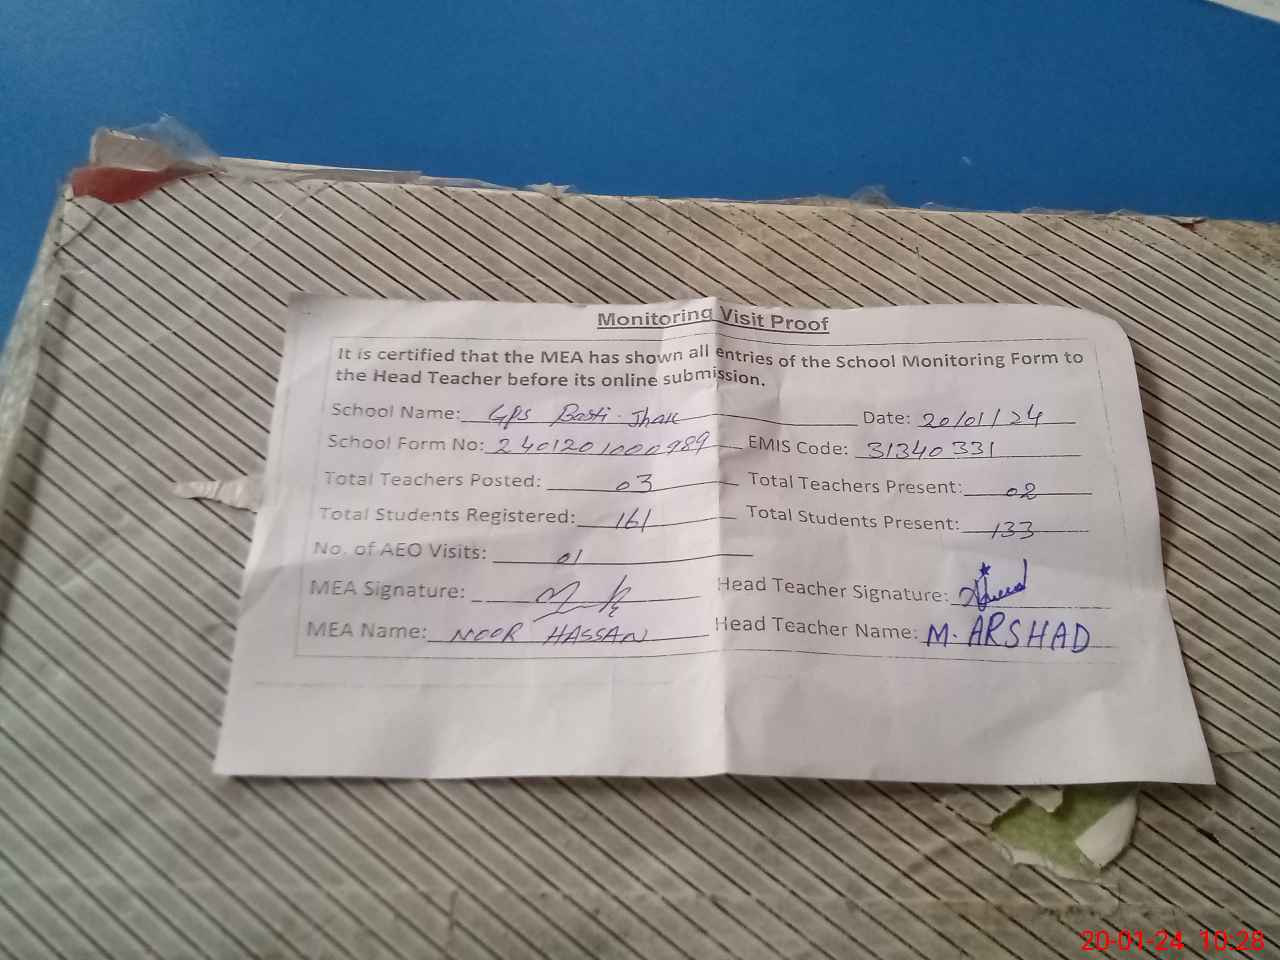 Monitoring Visit Proof
It is certified that the MEA has shown all entries of the School Monitoring Form to
the Head Teacher before its online submission.
School Name: GPS Basti Jhak Date: 20/01/24
School Form No: 2401201000989 EMIS Code: 31340331
Total Teachers Posted: 03 Total Teachers Present: 02
Total Students Registered: 161 Total Students Present: 133
No. of AEO Visits: 01
MEA Signature: Head Teacher Signature:
MEA Name: NOOR HASSAN Head Teacher Name: M. ARSHAD
20-01-24 10:28